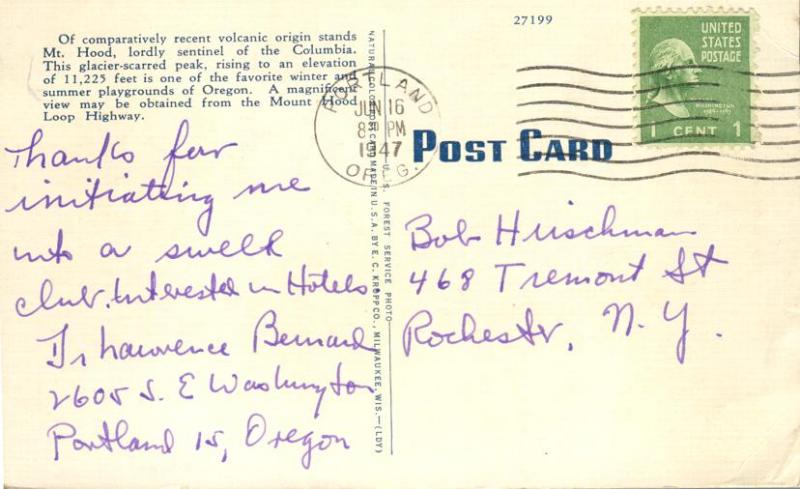 27199
Of comparatively recent volcanic origin stands
Mt. Hood, lordly sentinel of the Columbia.
This glacier-scarred peak, rising to an elevation
of 11,225 feet is one of the favorite winter and
summer playgrounds of Oregon. A magnificent
view may be obtained from the Mount Hood
Loop Highway.
NATURAL COLOR POST CARD MADE IN U.S.A. BY E. C. KROPP CO., MILWAUKEE, WIS.—(LDY)
U. S. FOREST SERVICE PHOTO
PORTLAND
JUN 16
8 PM
1947
OREG.
UNITED
STATES
POSTAGE
WASHINGTON
1 CENT 1
POST CARD
Thanks for
initiating me
into a swell
club. Interested in Hotels
Lawrence Bernard
2605 S. E Washington
Portland 15, Oregon
Bob Hirschman
468 Tremont St
Rochester, N. Y.